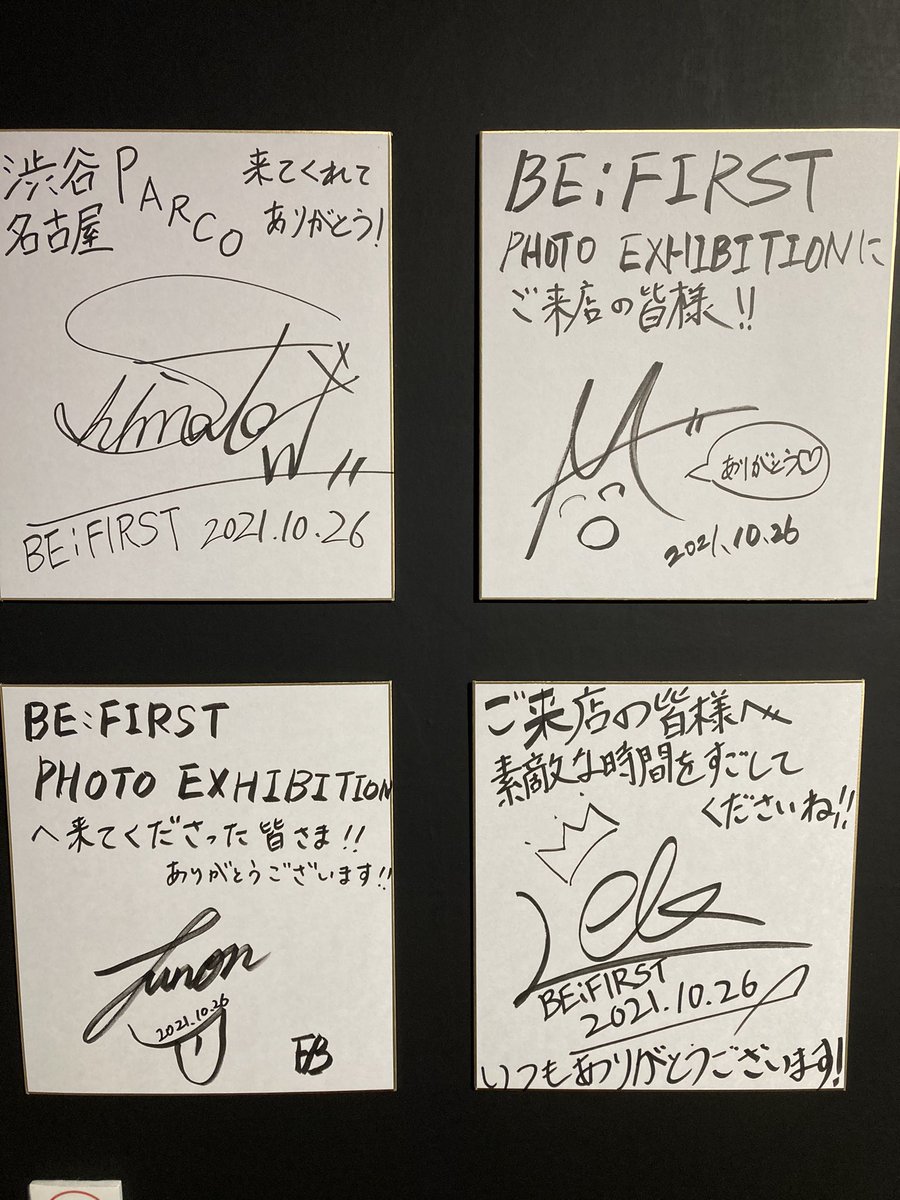 渋谷 PARCO 来てくれて
名古屋 ありがとう!
BE:FIRST 2021.10.26
BE:FIRST
PHOTO EXHIBITIONに
ご来店の皆様!!
ありがとう♡
2021.10.26
BE:FIRST
PHOTO EXHIBITION
へ来てくださった皆さま!!
ありがとうございます!!
Junon
2021.10.26
ご来店の皆様へ
素敵な時間をすごして
くださいね!!
Leo
BE:FIRST
2021.10.26
いつもありがとうございます!